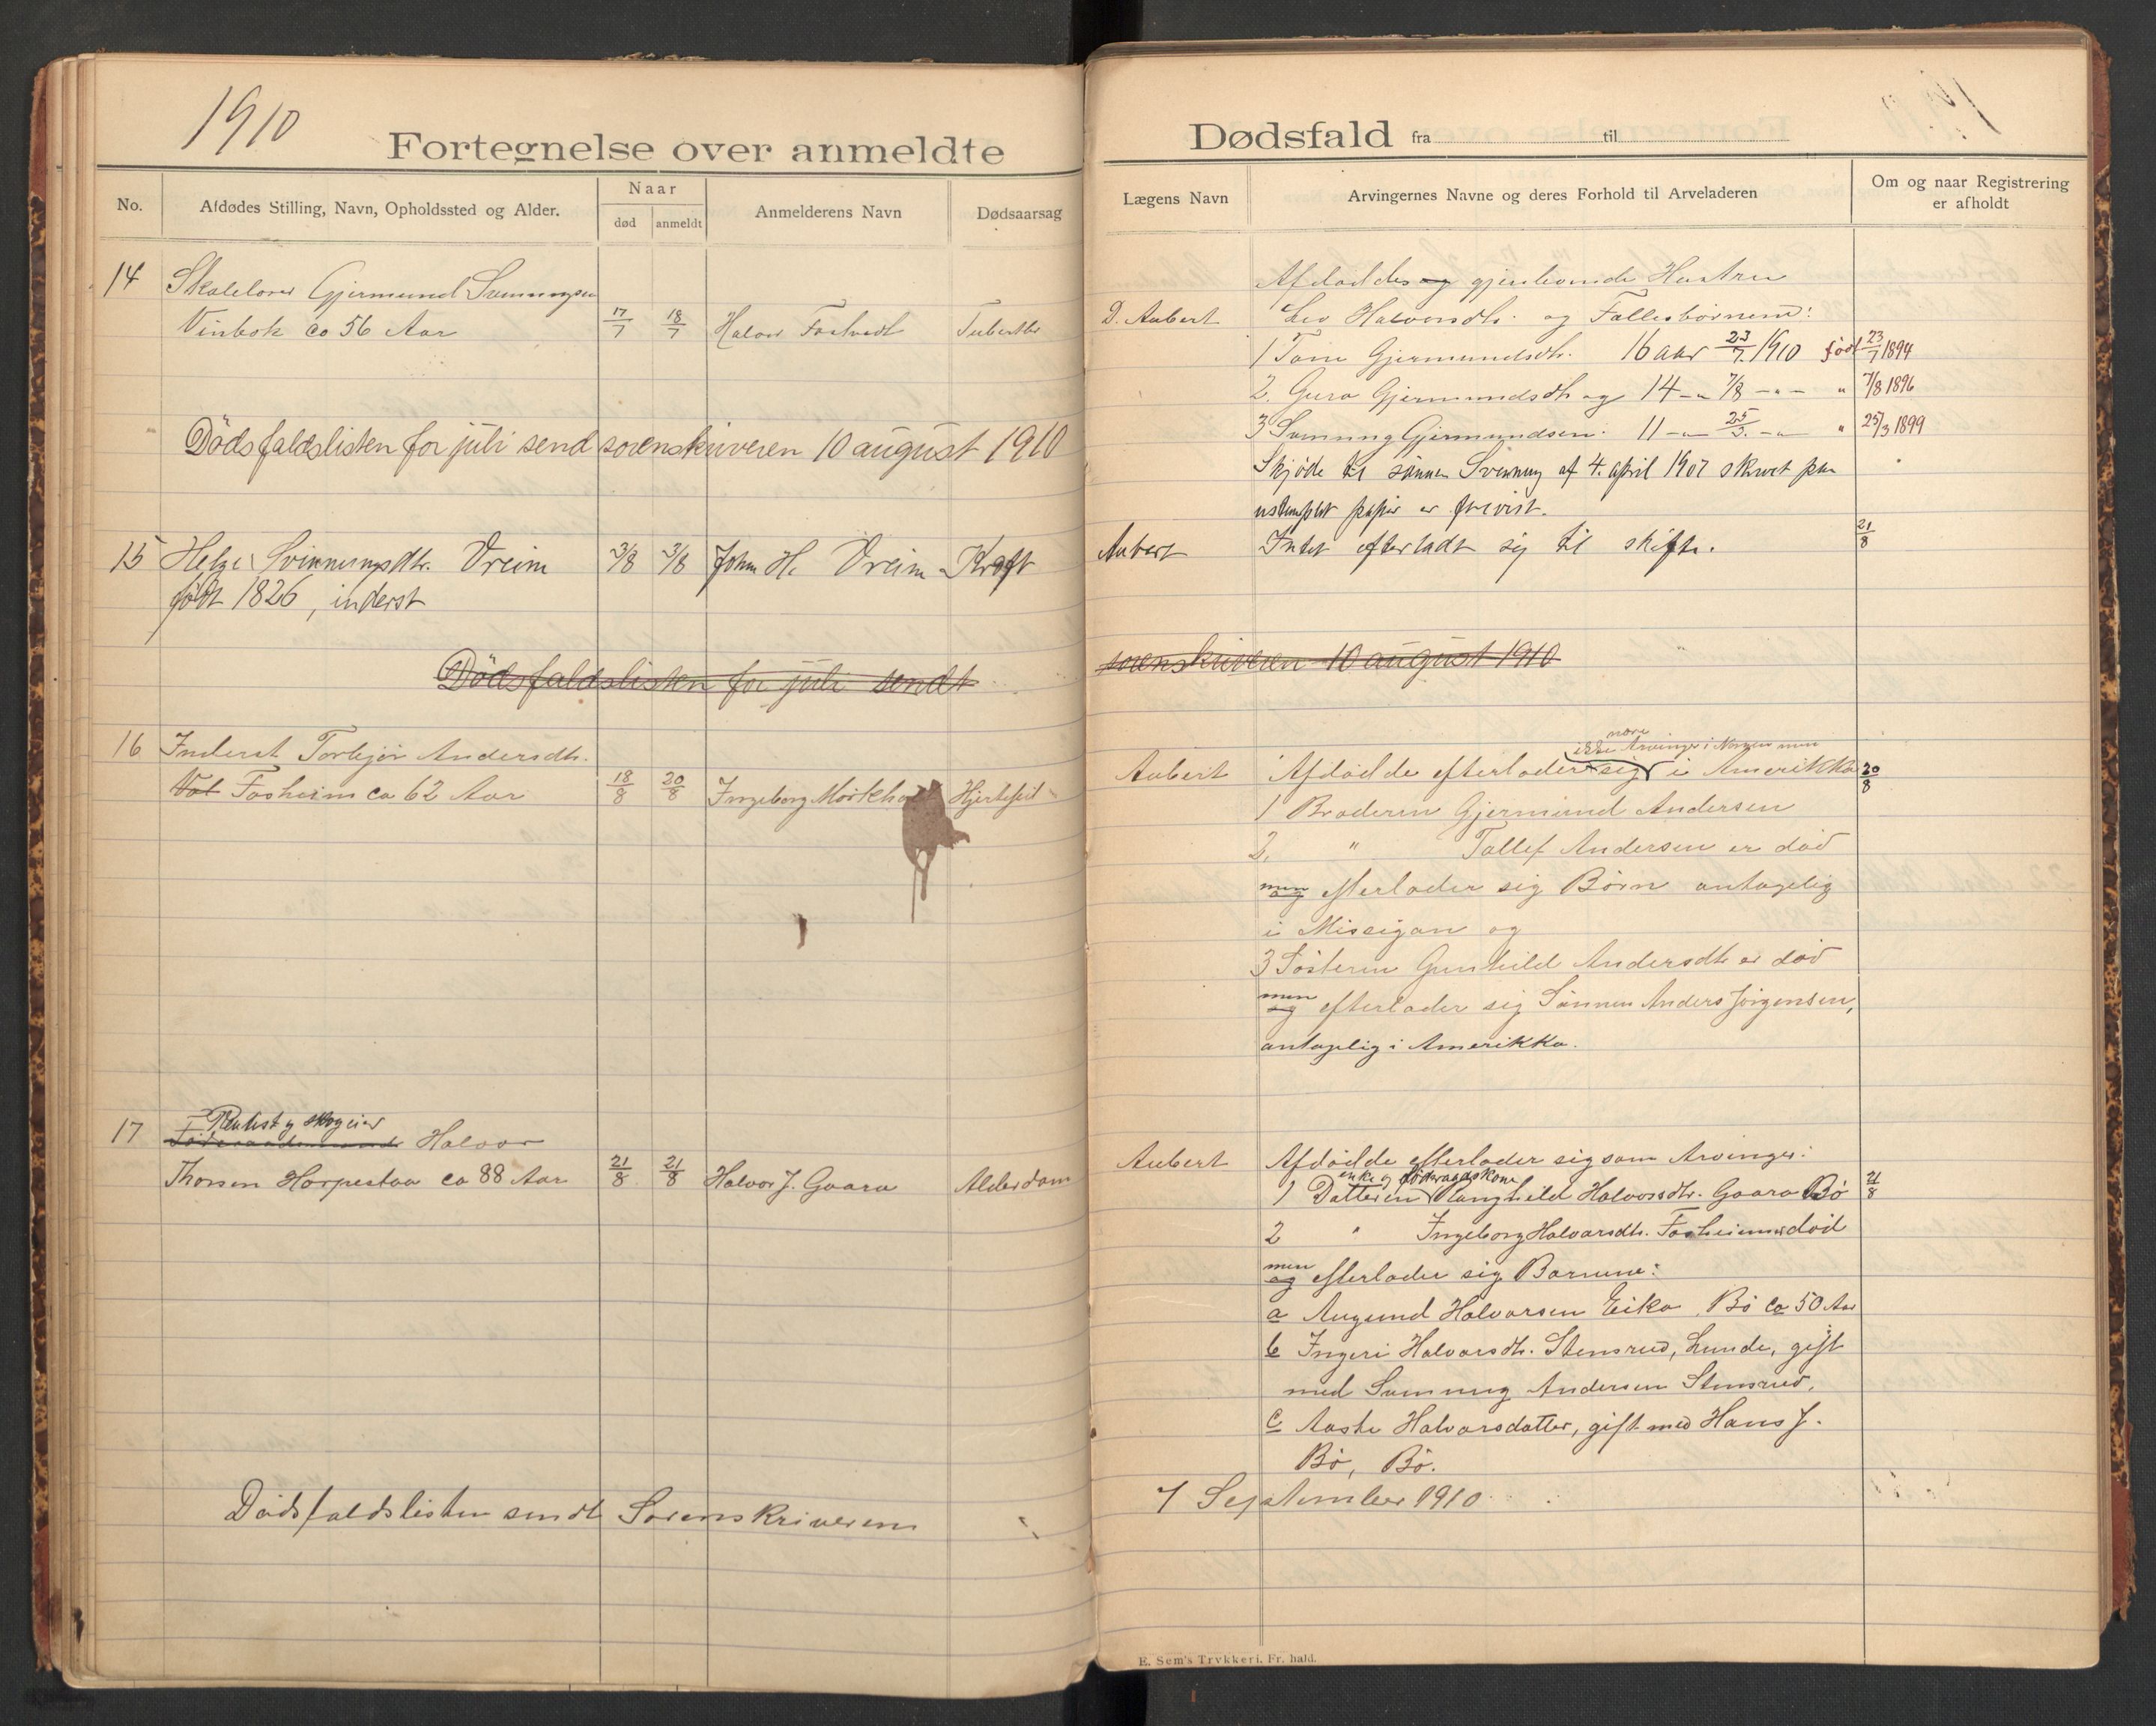 1910
Fortegnelse over anmeldte
No.
Afdødes Stilling, Navn, Opholdssted og Alder.
Naar
død
anmeldt
Anmelderens Navn
Dødsaarsag
14
Skolelærer Gjermund Svenningsen
Vinbok ca 56 Aar
17/7
18/7
Halvor
Dödsfaldslisten for juli send sorenskriveren 10 august 1910
15 Helge Svenningsdtr. Vreim 3/8 3/8 John H. Vreim Kræft
født 1826, inderst
Dödsfaldslisten for juli sendt
16 Inderst Torbjør Andersdtr.
Fosheim ca 62 Aar
18/8
20/8
Ingeborg Hjertefeil
17
Rentist og skogeier
Halvor
Thorsen Harpestaa ca 88 Aar
21/8
21/8
Halvor J. Gaara
Alderdom
Dødsfaldslisten sendt Sorenskriveren
Dødsfald fra til
Lægens Navn
Arvingernes Navne og deres Forhold til Arveladeren
Om og naar Registrering
er afholdt
Afdøddes og gjenlevende Hustru
D. Aubert
Liv Halvorsdtr. og Fællesbørnene:
1 Tone Gjermundsdtr. 16 aar 23/7 1910 født 23/7 1894
2. Guro Gjermundsdtr og 14 -"- 7/8 -"- " 7/8 1896
3 Svenung Gjermundsen. 11 -"- 25/3. -"- " 25/3 1899
Skjöde til sönnen Svenung af 4. april 1907 skrevet paa
ustemplet papir er forevist.
Aubert
Intet efterladt sig til skifte.
21/8
sorenskriveren 10 august 1910
nære
ikke Arvinger i Norgen men
Aubert
Afdødde efterlader sig i Amerikka
20/8
1 Broderen Gjermund Andersen
2. " Tollef Andersen er død
men
og efterlader sig Børn antagelig
i Missigan og
3 Søsteren Gunhild Andersdtr er død
men
og efterlader sig Sønnen Anders Jörgensen,
antagelig i Amerikka.
Aubert
Afdødde efterlader sig som Arvinger:
enke og föderaadskone
1 Datteren Ranghild Halvorsdtr. Gaara Bø
21/8
2 " Ingeborg Halvorsdtr. Fosheim er død
men
og efterlader sig Barnene:
a Augund Halvorsen Eika, Bö ca 50 Aar
b Ingeri Halvorsdtr. Stensrud, Lunde, gift
med Svenung Andersen Stensrud,
c Aaste Halvorsdatter, gift med Hans J.
Bø, Bø.
7 September 1910
E. Sem's Trykkeri, Fr. hald.